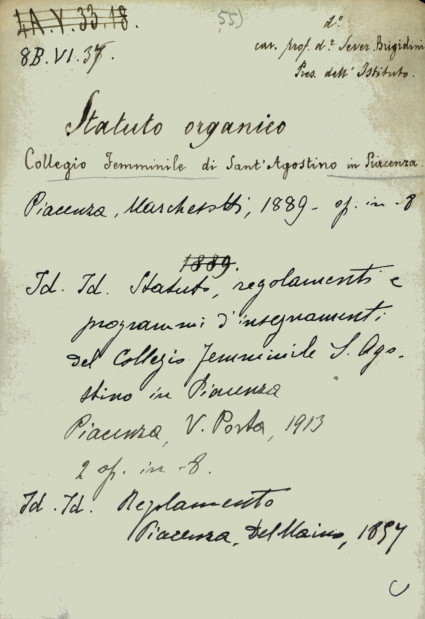 1.A.V.33.18.
55)
8B.VI.37.
d°
cav. prof. d.r Sever. Brigidini
Pres. dell' Istituto.
Statuto organico
Collegio Femminile di Sant'Agostino in Piacenza.
Piacenza, Marchesotti, 1889 - op. in -8
1889.
Id. Id. Statuto, regolamenti e
programmi d'insegnamenti
del Collegio Femminile S. Ago-
stino in Piacenza
Piacenza, V. Porta, 1913
2 op. in -8.
Id. Id. Regolamento
Piacenza, Del Maino, 1897